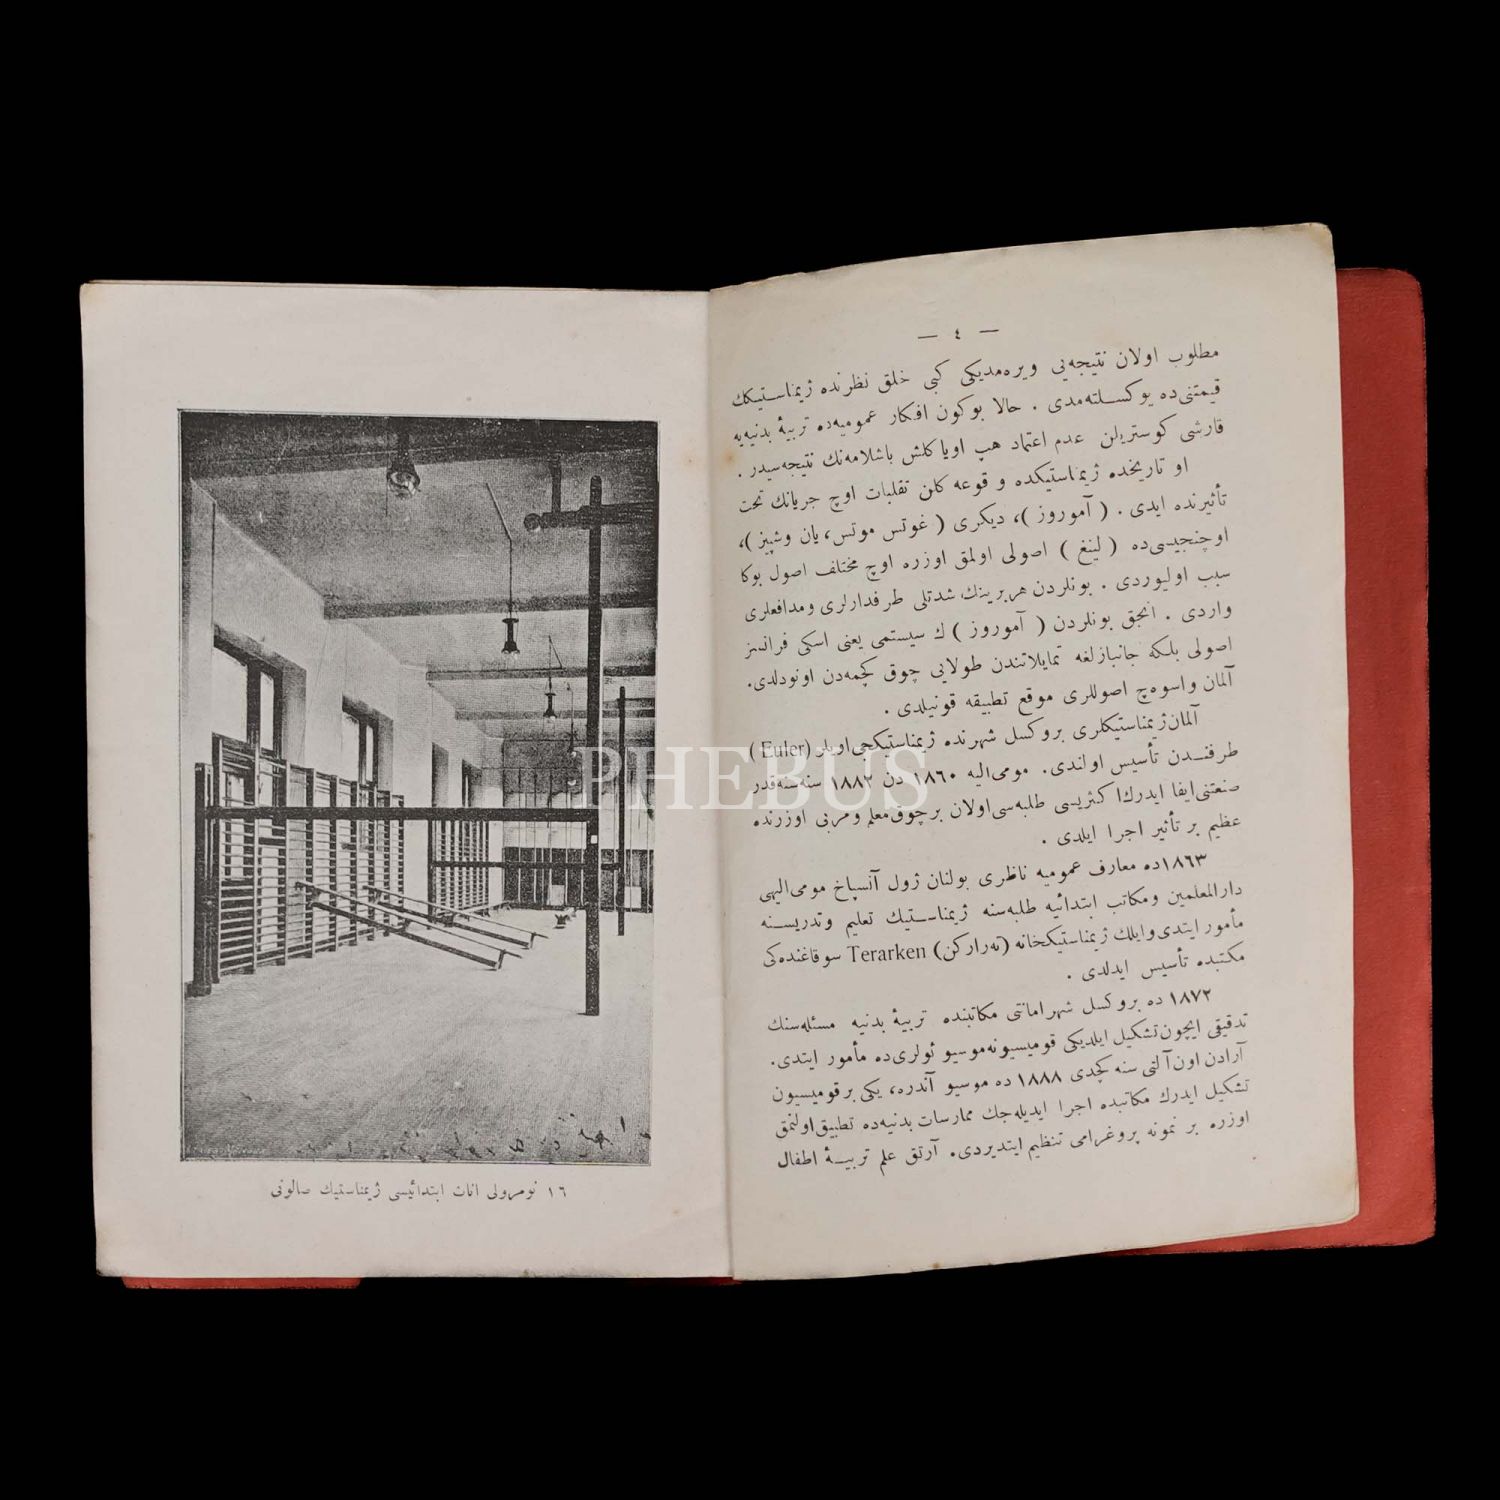 — ٤ —
مطلوب اولان نتیجه‌یی ویره‌مدیکی کبی خلق نظرنده ژیمناستیکك
قیمتنی‌ده یوکسلته‌مدی . حالا بوکون افکار عمومیه‌ده تربیهٔ بدنیه‌یه
قارشی کوستریلن عدم اعتماد هپ اویا کلش باشلامه‌نك نتیجه‌سیدر .
او تاریخده ژیمناستیکده و قوعه کلن تقلبات اوچ جریانك تحت
تأثیرنده ایدی . ( آموروز )، دیکری ( غوتس موتس، یان وشپیز )،
اوچنجیسی‌ده ( لینغ ) اصولی اولمق اوزره اوچ مختلف اصول بوکا
سبب اولیوردی . بونلردن هربرینك شدتلی طرفدارلری ومدافعلری
واردی . انجق بونلردن ( آموروز ) ك سیستمی یعنی اسکی فرانسز
اصولی بلکه جانبازلغه تمایلاتندن طولایی چوق کچمه‌دن اونودلدی.
آلمان واسوه‌ج اصوللری موقع تطبیقه قونیلدی .
آلمان ژیمناستیکلری بروکسل شهرنده ژیمناستیکجی اویلر (Euler)
طرفندن تأسیس اولندی. مومی‌الیه ١٨٦٠ دن ١٨٨٢ سنه‌سنه‌قدر
صنعتنی ایفا ایدرك اکثریسی طلبه‌سی اولان برچوق معلم ومربی اوزرنده
عظیم بر تأثیر اجرا ایلدی .
١٨٦٣ده معارف عمومیه ناظری بولنان ژول آنسپاخ مومی‌الیهی
دارالمعلمین ومکاتب ابتدائیه طلبه‌سنه ژیمناستیك تعلیم وتدریسنه
مأمور ایتدی وایلك ژیمناستیکخانه (ته‌رارکن) Terarken سوقاغنده‌کی
مکتبده تأسیس ایدلدی .
١٨٧٢ ده بروکسل شهرامانتی مکاتبنده تربیهٔ بدنیه مسئله‌سنك
تدقیقی ایچون تشکیل ایلدیکی قومیسیونه موسیو ئولری‌ده مأمور ایتدی.
آرادن اون آلتی سنه کچدی ١٨٨٨ ده موسیو آندره، یکی برقومیسیون
تشکیل ایدرك مکاتبده اجرا ایدیله‌جك ممارسات بدنیه‌ده تطبیق اولنمق
اوزره بر نمونه پروغرامی تنظیم ایتدیردی. آرتق علم تربیهٔ اطفال
١٦ نومرولی اناث ابتدائیسی ژیمناستیك صالونی
PHEBUS